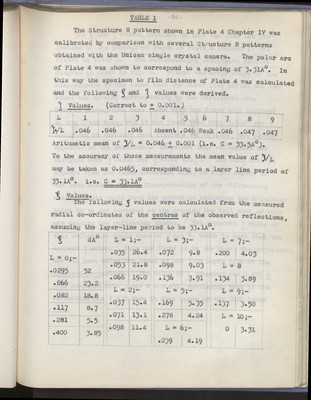 TABLE I -80-
The Structure B pattern shown in Plate 4 Chapter IV was
calibrated by comparison with several Structure B patterns
obtained with the Unicam single crystal camera. The polar arc
of Plate 4 was shown to correspond to a spacing of 3.31A°. In
this way the specimen to film distance of Plate 4 was calculated
and the following ξ and ζ values were derived.
ζ Values. (Correct to ± 0.001.)
L 1 2 3 4 5 6 7 8 9
ζ/L .046 .046 .046 Absent .046 Weak .046 .047 .047
Arithmetic mean of ζ/L = 0.046 ± 0.001 (i.e. C = 33.5A°).
To the accuracy of these measurements the mean value of ζ/L
may be taken as 0.0465, corresponding to a layer line period of
33.1A°. i.e. C = 33.1A°
ξ Values.
The following ξ values were calculated from the measured
radial co-ordinates of the centres of the observed reflections,
assuming the layer-line period to be 33.1A°.
ξ dA° L = 1;- L = 3;- L = 7;-
.035 26.4 .072 9.8 .200 4.03
L = 0;-
.053 21.8 .098 9.03 L = 8
.0295 52
.066 19.0 .136 7.91 .134 3.89
.066 23.2
L = 2;- L = 5;- L = 9;-
.082 18.8
.037 15.4 .169 5.35 .137 3.50
.117 8.7
.071 13.1 .278 4.24 L = 10;-
.281 5.5
.098 11.4 L = 6;- 0 3.31
.400 3.85
.239 4.19